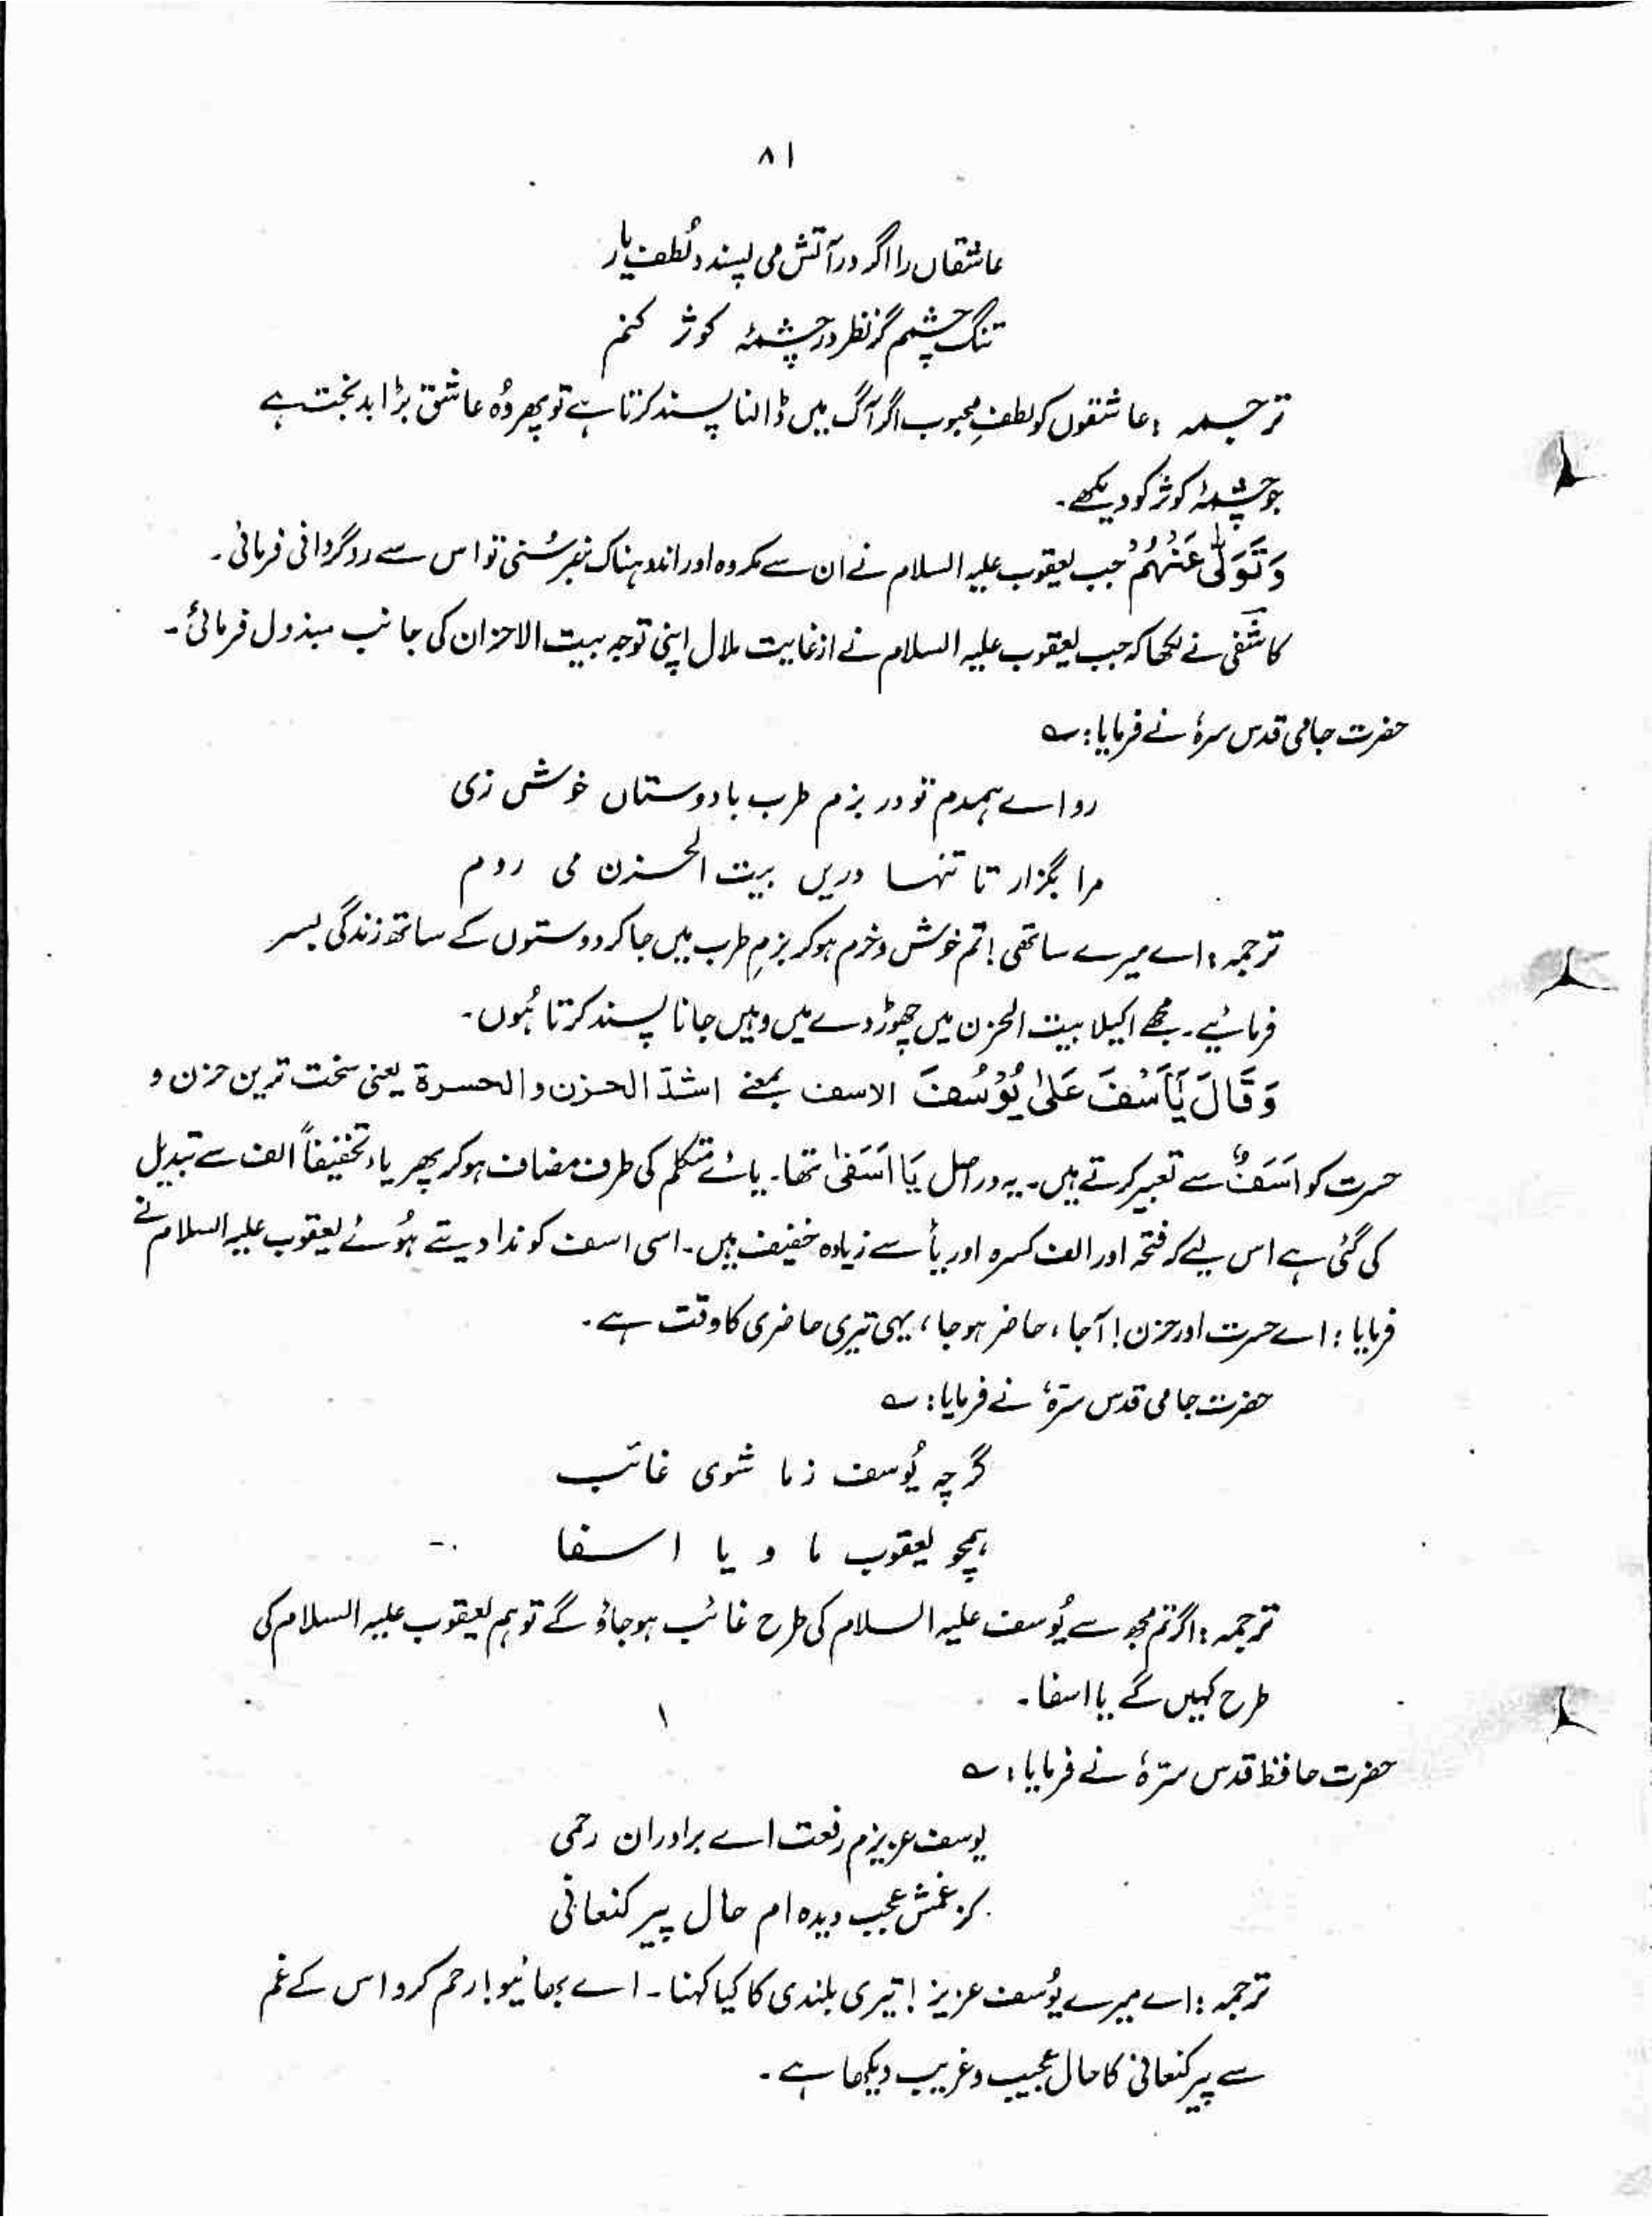 ۸۱
عاشقاں را اگر در آتش می پسندد لُطف یار
تنگ چشمم گر نظر در چشمۂ کوثر کنم
ترجمہ : عاشقوں کو لطفِ محبوب اگر آگ میں ڈالنا پسند کرتا ہے تو پھر وُہ عاشق بڑا بدبخت ہے
جو چشمۂ کوثر کو دیکھے۔
وَتَوَلّٰی عَنْہُمْ جب یعقوب علیہ السلام نے ان سے مکروہ اور اندوہناک خبر سُنی تو اس سے روگردانی فرمائی۔
کاشفی نے لکھا کہ جب یعقوب علیہ السلام نے از غایت ملال اپنی توجہ بیت الاحزان کی جانب مبذول فرمائی۔
حضرت جامی قدس سرہٗ نے فرمایا : ؎
رو اے ہمدم تو در بزم طرب با دوستاں خوش زی
مرا بگزار تا تنہا دریں بیت الحزن می روم
ترجمہ : اے میرے ساتھی ! تم خوش و خرم ہو کر بزمِ طرب میں جا کر دوستوں کے ساتھ زندگی بسر
فرمائیے۔ مجھے اکیلا بیت الحزن میں چھوڑ دے میں وہیں جانا پسند کرتا ہُوں۔
وَقَالَ یٰٓاَسَفٰی عَلٰی یُوْسُفَ الاسف بمعنے اشدّ الحزن و الحسرۃ یعنی سخت ترین حزن و
حسرت کو اَسَفٌ سے تعبیر کرتے ہیں۔ یہ دراصل یَا اَسَفٰی تھا۔ یائے متکلم کی طرف مضاف ہو کر پھر یاء تخفیفاً الف سے تبدیل
کی گئی ہے اس لیے کہ فتحہ اور الف کسرہ اور یأ سے زیادہ خفیف ہیں۔ اسی اسف کو ندا دیتے ہُوئے یعقوب علیہ السلام نے
فرمایا : اے حسرت اور حزن ! آ جا ، حاضر ہو جا ، یہی تیری حاضری کا وقت ہے۔
حضرت جامی قدس سرّہٗ نے فرمایا : ؎
گرچہ یُوسف زما شوی غائب
ہمچو یعقوب ما و یا اسفا
ترجمہ : اگر تم مجھ سے یُوسف علیہ السلام کی طرح غائب ہو جاؤ گے تو ہم یعقوب علیہ السلام کی
طرح کہیں گے یا اسفا۔
حضرت حافظ قدس سرّہٗ نے فرمایا : ؎
یوسف عزیزم رفعت اے برادران رحمی
کز غمش عجب دیدہ ام حال پیر کنعانی
ترجمہ : اے میرے یُوسف عزیز ! تیری بلندی کا کیا کہنا۔ اے بھائیو ! رحم کرو اس کے غم
سے پیر کنعانی کا حال عجیب و غریب دیکھا ہے۔